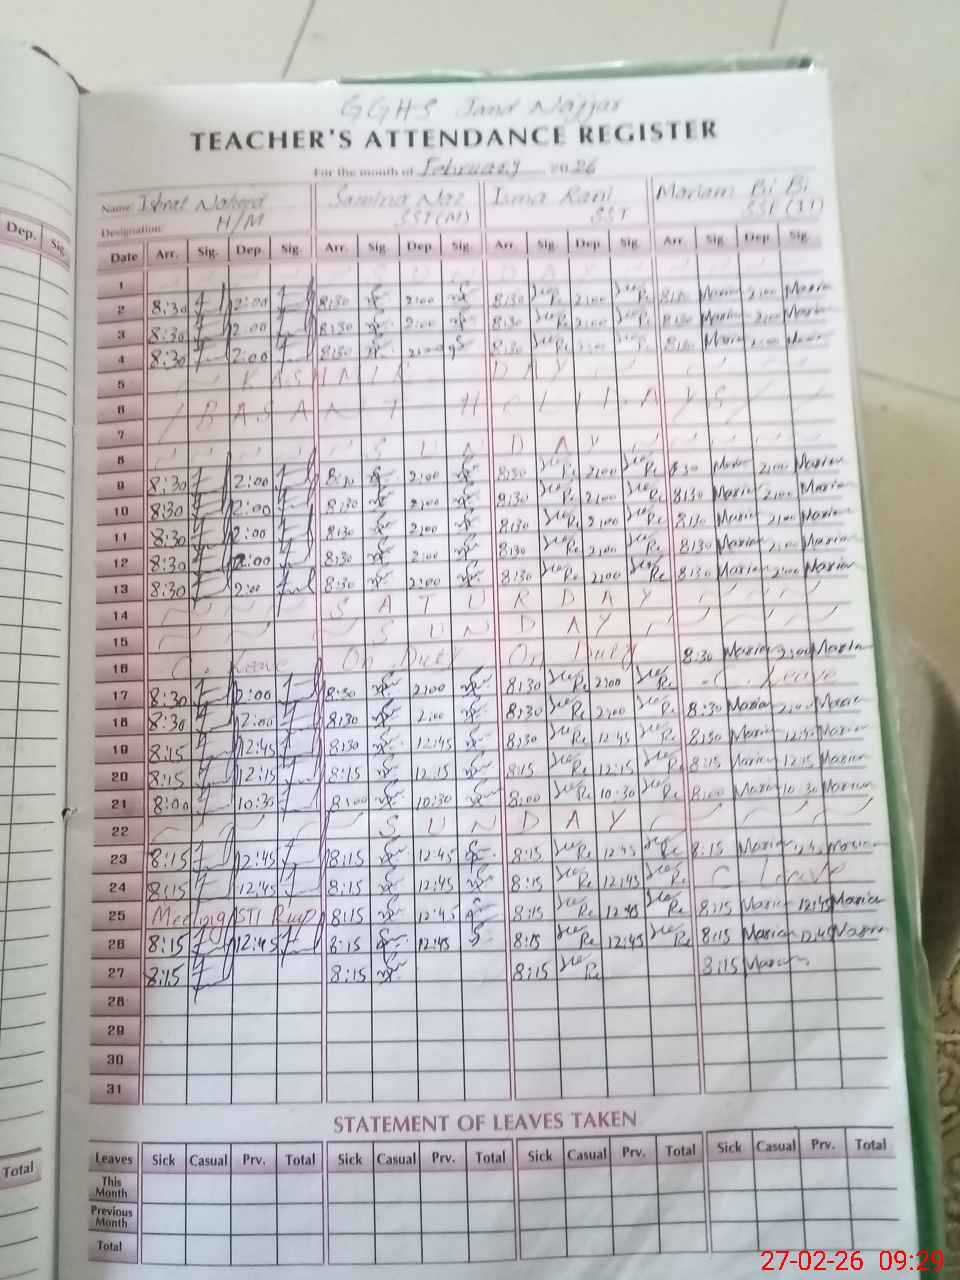 GGHS Jand Najjar
TEACHER'S ATTENDANCE REGISTER
For the month of February 2026
Name Samina Naz Isma Rani Mariam Bi Bi
Designation H/M SST(M) SST SST (IT)
Dep. Sig.
Date Arr. Sig. Dep. Sig. Arr. Sig. Dep Sig. Arr Sig. Dep Sig. Arr. Sig Dep Sig.
1 S U N D A Y
2 8:30 2:00 8:30 2:00 8:30 2:00 8:30 Maria 2:00 Maria
3 8:30 2:00 8:30 2:00 8:30 2:00 8:30 Maria 2:00 Maria
4 8:30 2:00 8:30 2:00 8:30 2:00 8:30 Maria 2:00
5 D A Y
6 B A S A N T H
7
8 S U N D A Y
9 8:30 2:00 8:30 2:00 8:30 2:00 8:30 Maria 2:00 Maria
10 8:30 2:00 8:30 2:00 8:30 2:00 8:30 Maria 2:00 Maria
11 8:30 2:00 8:30 2:00 8:30 2:00 8:30 Maria 2:00 Maria
12 8:30 2:00 8:30 2:00 8:30 2:00 8:30 Maria 2:00 Maria
13 8:30 2:00 8:30 2:00 8:30 2:00 8:30 Maria 2:00 Maria
14 S A T U R D A Y
15 S U N D A Y
16 On Duty On Duty 8:30 Maria 2:00 Maria
17 8:30 2:00 8:30 2:00 8:30 2:00 C. Leave
18 8:30 2:00 8:30 2:00 8:30 2:00 8:30 Maria 2:00 Maria
19 8:15 12:45 8:30 12:45 8:30 12:45 8:30 Maria 12:45 Maria
20 8:15 12:15 8:15 12:15 8:15 12:15 8:15 Maria 12:15 Maria
21 8:00 10:30 8:00 10:30 8:00 10:30 8:00 Maria 10:30 Maria
22 S U N D A Y
23 8:15 12:45 8:15 12:45 8:15 12:45 8:15 Maria 12:45 Maria
24 8:15 12:45 8:15 12:45 8:15 12:45 C Leave
25 8:15 12:45 8:15 12:45 8:15 Maria 12:45 Maria
26 8:15 12:45 8:15 12:45 8:15 12:45 8:15 Maria 12:45 Maria
27 8:15 8:15 8:15 8:15 Maria
28
29
30
31
STATEMENT OF LEAVES TAKEN
Leaves Sick Casual Prv. Total Sick Casual Prv. Total Sick Casual Prv. Total Sick Casual Prv. Total
Total
This Month
Previous Month
Total
27-02-26 09:29